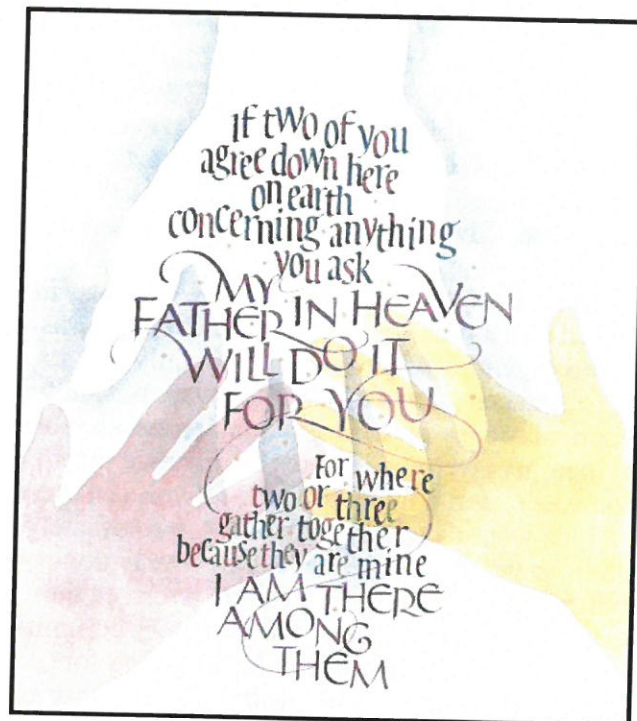 If two of you
agree down here
on earth
concerning anything
you ask
MY
FATHER IN HEAVEN
WILL DO IT
FOR YOU
For where
two or three
gather together
because they are mine
I AM THERE
AMONG
THEM